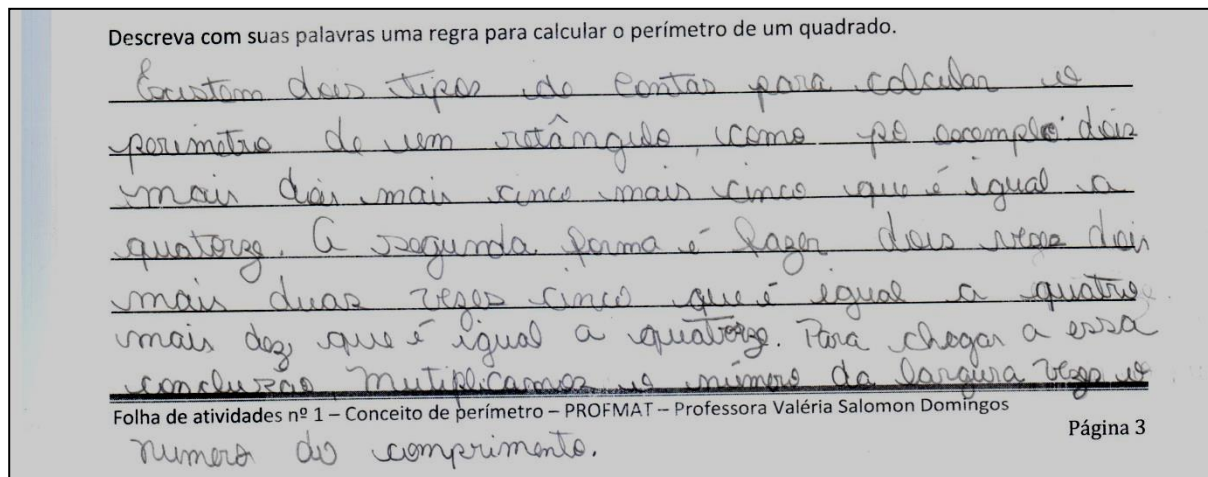 Descreva com suas palavras uma regra para calcular o perímetro de um quadrado.
Existem dois tipos de contas para calcular o
perimetro de um retângulo, como po exemplo: dois
mais dois mais cinco mais cinco que é igual a
quatorze. A segunda forma é fazer dois vezes dois
mais duas vezes cinco que é igual a quatro
mais dez que é igual a quatorze. Para chegar a essa
conclusão, mutiplicamos o número da largura vezes o
Folha de atividades nº 1 – Conceito de perímetro – PROFMAT – Professora Valéria Salomon Domingos
Página 3
numero do comprimento.